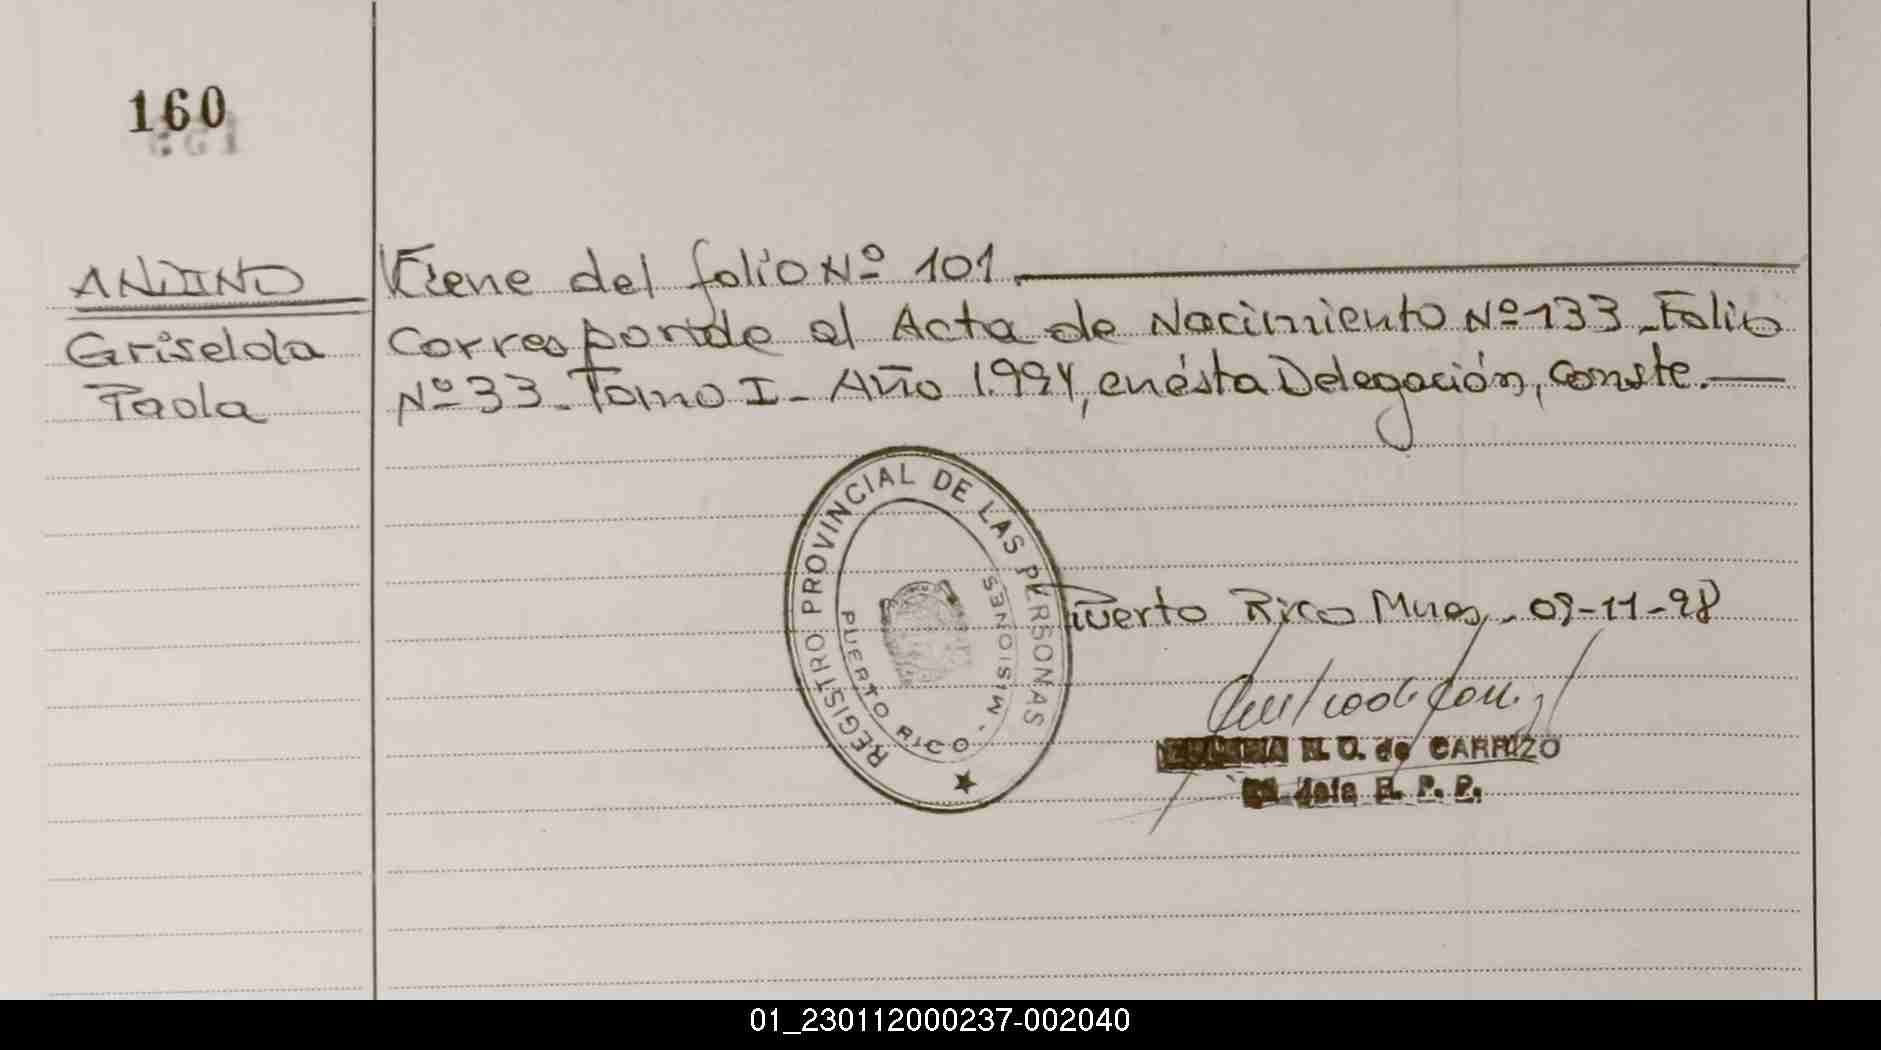 160
ANDINO
Griselda
Paola
Viene del folio Nº 101.
Corresponde al Acta de Nacimiento Nº 133 - Folio
Nº 33 - Tomo I - Año 1.994, en ésta Delegación, Conste.
REGISTRO PROVINCIAL DE LAS PERSONAS
PUERTO RICO - MISIONES
Puerto Rico Mnes, 09-11-98
de CARRIZO
Jefe R. P. P.
01_230112000237-002040